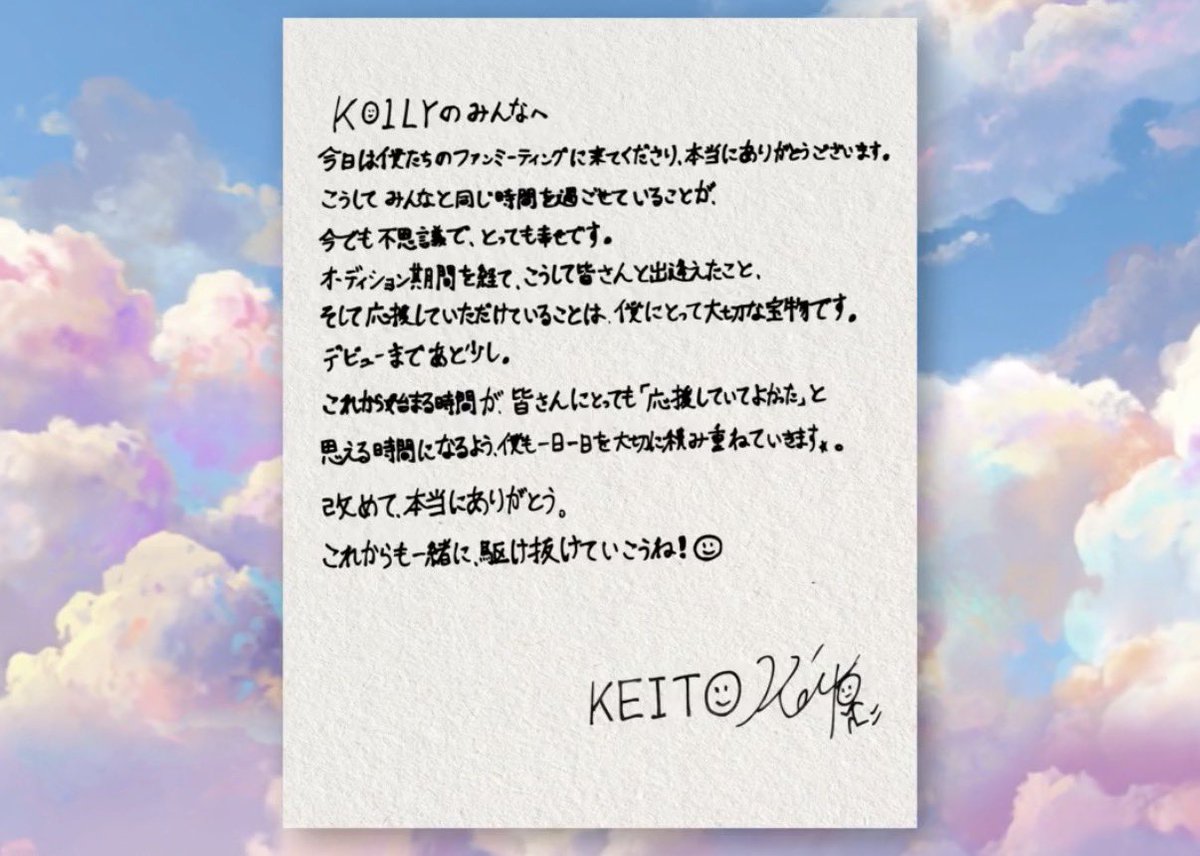 KO1LYのみんなへ
今日は僕たちのファンミーティングに来てくださり、本当にありがとうございます。
こうして みんなと同じ時間を過ごせていることが、
今でも不思議で、とっても幸せです。
オーディション期間を経て、こうして皆さんと出逢えたこと、
そして応援していただけていることは、僕にとって大切な宝物です。
デビューまであと少し。
これから始まる時間が、皆さんにとっても「応援していてよかった」と
思える時間になるよう、僕も一日一日を大切に積み重ねていきます★。
改めて、本当にありがとう。
これからも一緒に、駆け抜けていこうね!☺
KEITO